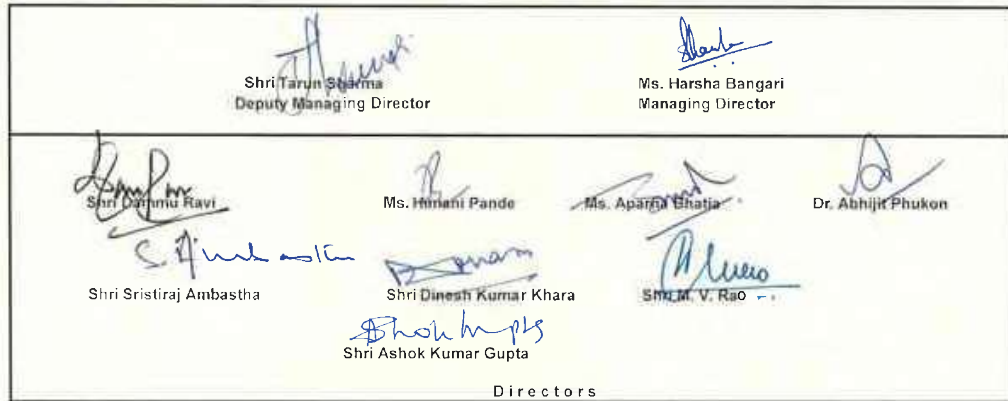 Shri Tarun Sharma Ms. Harsha Bangari
Deputy Managing Director Managing Director
Shri Dammu Ravi Ms. Himani Pande Ms. Aparna Bhatia Dr. Abhijit Phukon
Shri Sristiraj Ambastha Shri Dinesh Kumar Khara Shri M. V. Rao
Shri Ashok Kumar Gupta
Directors